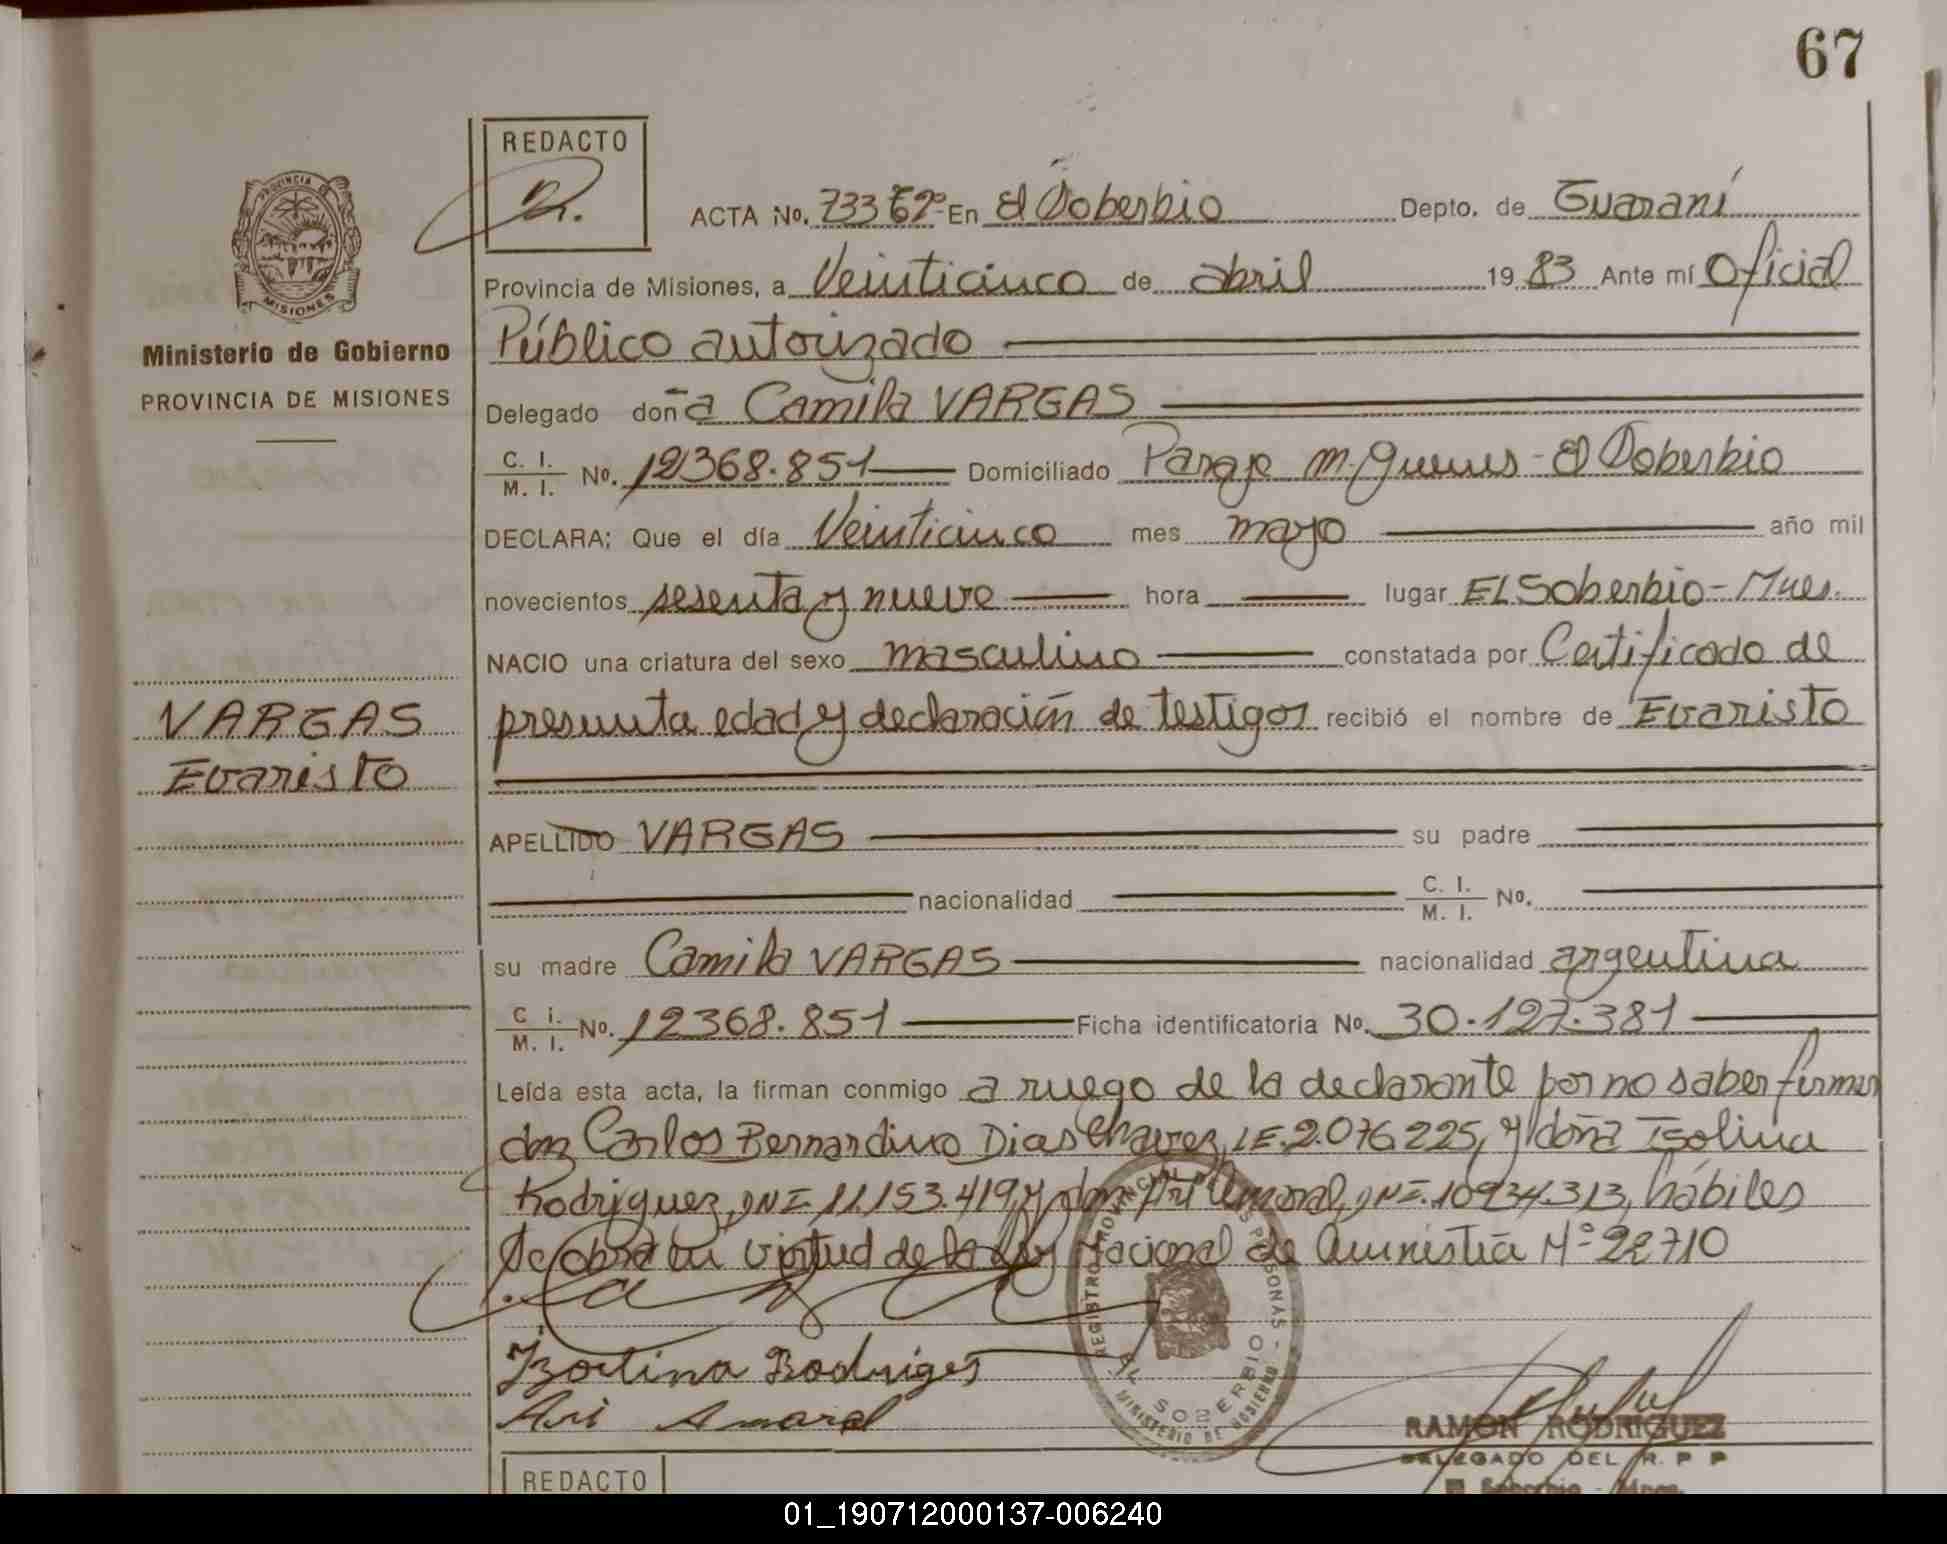 67
REDACTO
ACTA No. 733 Tº 2º En El Soberbio Depto. de Guaraní
Provincia de Misiones, a Veinticinco de abril 19 83 Ante mí Oficial
Público autorizado
Delegado doña Camila VARGAS
C. I. M. I. No. 12368.851 Domiciliado Paraje M. Guemes - El Soberbio
DECLARA: Que el día Veinticinco mes mayo año mil
novecientos sesenta y nueve hora lugar El Soberbio - Mnes.
NACIO una criatura del sexo masculino constatada por Certificado de
presunta edad y declaración de testigos recibió el nombre de Evaristo
APELLIDO VARGAS su padre
nacionalidad C. I. M. I. No.
su madre Camila VARGAS nacionalidad argentina
C i. M. I. No. 12368.851 Ficha identificatoria No. 30.127.381
Leída esta acta, la firman conmigo a ruego de la declarante por no saber firmar
don Carlos Bernardino Dias Chavez, LE. 2.076.225, y doña Isolina
Rodriguez, DNI. 11.153.419, y don Ari Amaral, DNI. 10934.313, hábiles
Se obra en virtud de la Ley Nacional de Amnistia Nº 22710
Izortina Rodriges
Ari Amaral
REGISTRO PROVINCIAL DE LAS PERSONAS -
EL SOBERBIO
MINISTERIO DE GOBIERNO
RAMON RODRIGUEZ
DELEGADO DEL R. P P
El Soberbio - Mnes.
REDACTO
PROVINCIA DE
MISIONES
Ministerio de Gobierno
PROVINCIA DE MISIONES
VARGAS
Evaristo
01_190712000137-006240